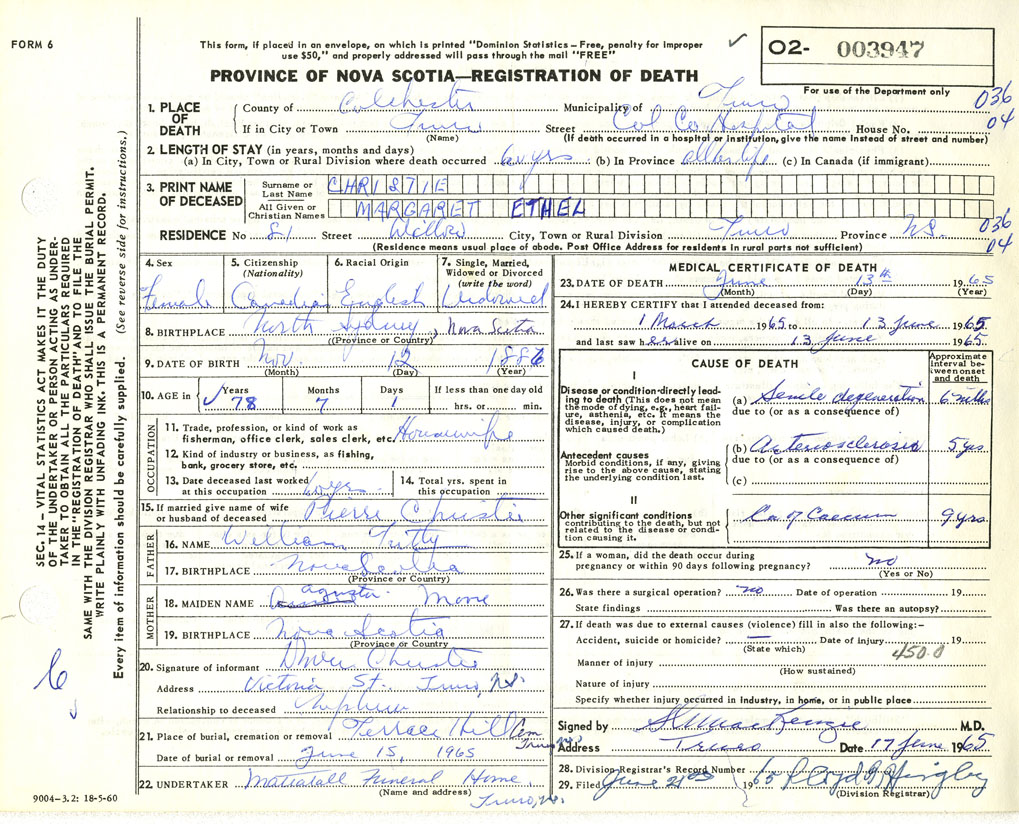 FORM 6
This form, if placed in an envelope, on which is printed "Dominion Statistics – Free, penalty for improper
use $50," and properly addressed will pass through the mail "FREE"
✓
02- 003947
For use of the Department only
PROVINCE OF NOVA SCOTIA—REGISTRATION OF DEATH
SEC. 14 – VITAL STATISTICS ACT MAKES IT THE DUTY
OF THE UNDERTAKER OR PERSON ACTING AS UNDER-
TAKER TO OBTAIN ALL THE PARTICULARS REQUIRED
IN THE "REGISTRATION OF DEATH" AND TO FILE THE
SAME WITH THE DIVISION REGISTRAR WHO SHALL ISSUE THE BURIAL PERMIT.
WRITE PLAINLY WITH UNFADING INK. THIS IS A PERMANENT RECORD.
Every item of information should be carefully supplied. (See reverse side for instructions.)
1. PLACE OF DEATH
County of Colchester Municipality of Truro 036
If in City or Town Truro Street Col Co Hospital House No. 04
(Name) (If death occurred in a hospital or institution, give the name instead of street and number)
2. LENGTH OF STAY (in years, months and days)
(a) In City, Town or Rural Division where death occurred 60 yrs (b) In Province all her life (c) In Canada (if immigrant)
3. PRINT NAME OF DECEASED
Surname or Last Name CHRISTIE
All Given or Christian Names MARGARET ETHEL
RESIDENCE No 81 Street Willow City, Town or Rural Division Truro Province N.S. 036
04
(Residence means usual place of abode. Post Office Address for residents in rural parts not sufficient)
4. Sex Female
5. Citizenship (Nationality) Canadian
6. Racial Origin English
7. Single, Married, Widowed or Divorced (write the word) Widowed
8. BIRTHPLACE North Sydney, Nova Scotia
(Province or Country)
9. DATE OF BIRTH Nov. 12 1886
(Month) (Day) (Year)
10. AGE in ✓ Years 78 Months 7 Days 1 If less than one day old hrs. or min.
OCCUPATION
11. Trade, profession, or kind of work as
fisherman, office clerk, sales clerk, etc. Housewife
12. Kind of industry or business, as fishing,
bank, grocery store, etc.
13. Date deceased last worked at this occupation
14. Total yrs. spent in this occupation
15. If married give name of wife
or husband of deceased Pierre Christie
FATHER
16. NAME William Tutty
17. BIRTHPLACE Nova Scotia
(Province or Country)
MOTHER
18. MAIDEN NAME Agusta
19. BIRTHPLACE Nova Scotia
(Province or Country)
20. Signature of informant Christie
Address Victoria St. Truro, N.S.
Relationship to deceased Nephew
21. Place of burial, cremation or removal Terrace Hill Cem
Truro N.S.
Date of burial or removal June 15, 1965
22. UNDERTAKER Mattatall Funeral Home
(Name and address) Truro, N.S.
9004–3.2: 18-5-60
MEDICAL CERTIFICATE OF DEATH
23. DATE OF DEATH June 13th 1965
(Month) (Day) (Year)
24. I HEREBY CERTIFY that I attended deceased from:
1 March 1965 to 13 June 1965
and last saw her alive on 13 June 1965
CAUSE OF DEATH
Approximate interval between onset and death
I
Disease or condition directly lead-
ing to death (This does not mean
the mode of dying, e.g., heart fail-
ure, asthenia, etc. It means the
disease, injury, or complication
which caused death.)
(a) Senile degeneration 6 mths
due to (or as a consequence of)
Antecedent causes
Morbid conditions, if any, giving
rise to the above cause, stating
the underlying condition last.
(b) Arteriosclerosis 5 yrs
due to (or as a consequence of)
(c)
II
Other significant conditions
contributing to the death, but not
related to the disease or condi-
tion causing it.
Ca of Caecum 9 yrs
25. If a woman, did the death occur during
pregnancy or within 90 days following pregnancy? no
(Yes or No)
26. Was there a surgical operation? no Date of operation 19
State findings Was there an autopsy?
27. If death was due to external causes (violence) fill in also the following:–
Accident, suicide or homicide? — Date of injury 19
(State which) 450.0
Manner of injury
(How sustained)
Nature of injury
Specify whether injury occurred in industry, in home, or in public place
Signed by MacKenzie M.D.
Address Truro Date 17 June 1965
28. Division Registrar's Record Number
29. Filed June 21st 1965
(Division Registrar)